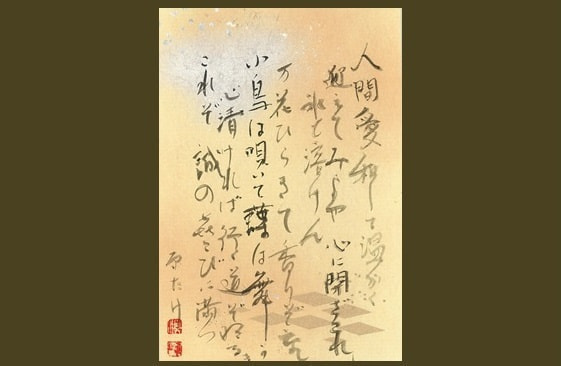 人間愛 和して温かく
迎えてみよや 心に閉ざされ
氷も溶けん
万花ひらきて香りぞ
小鳥は唄いて蝶は舞う
心清ければ行く道ぞ
これぞ誠の喜びに満つ
原たけ